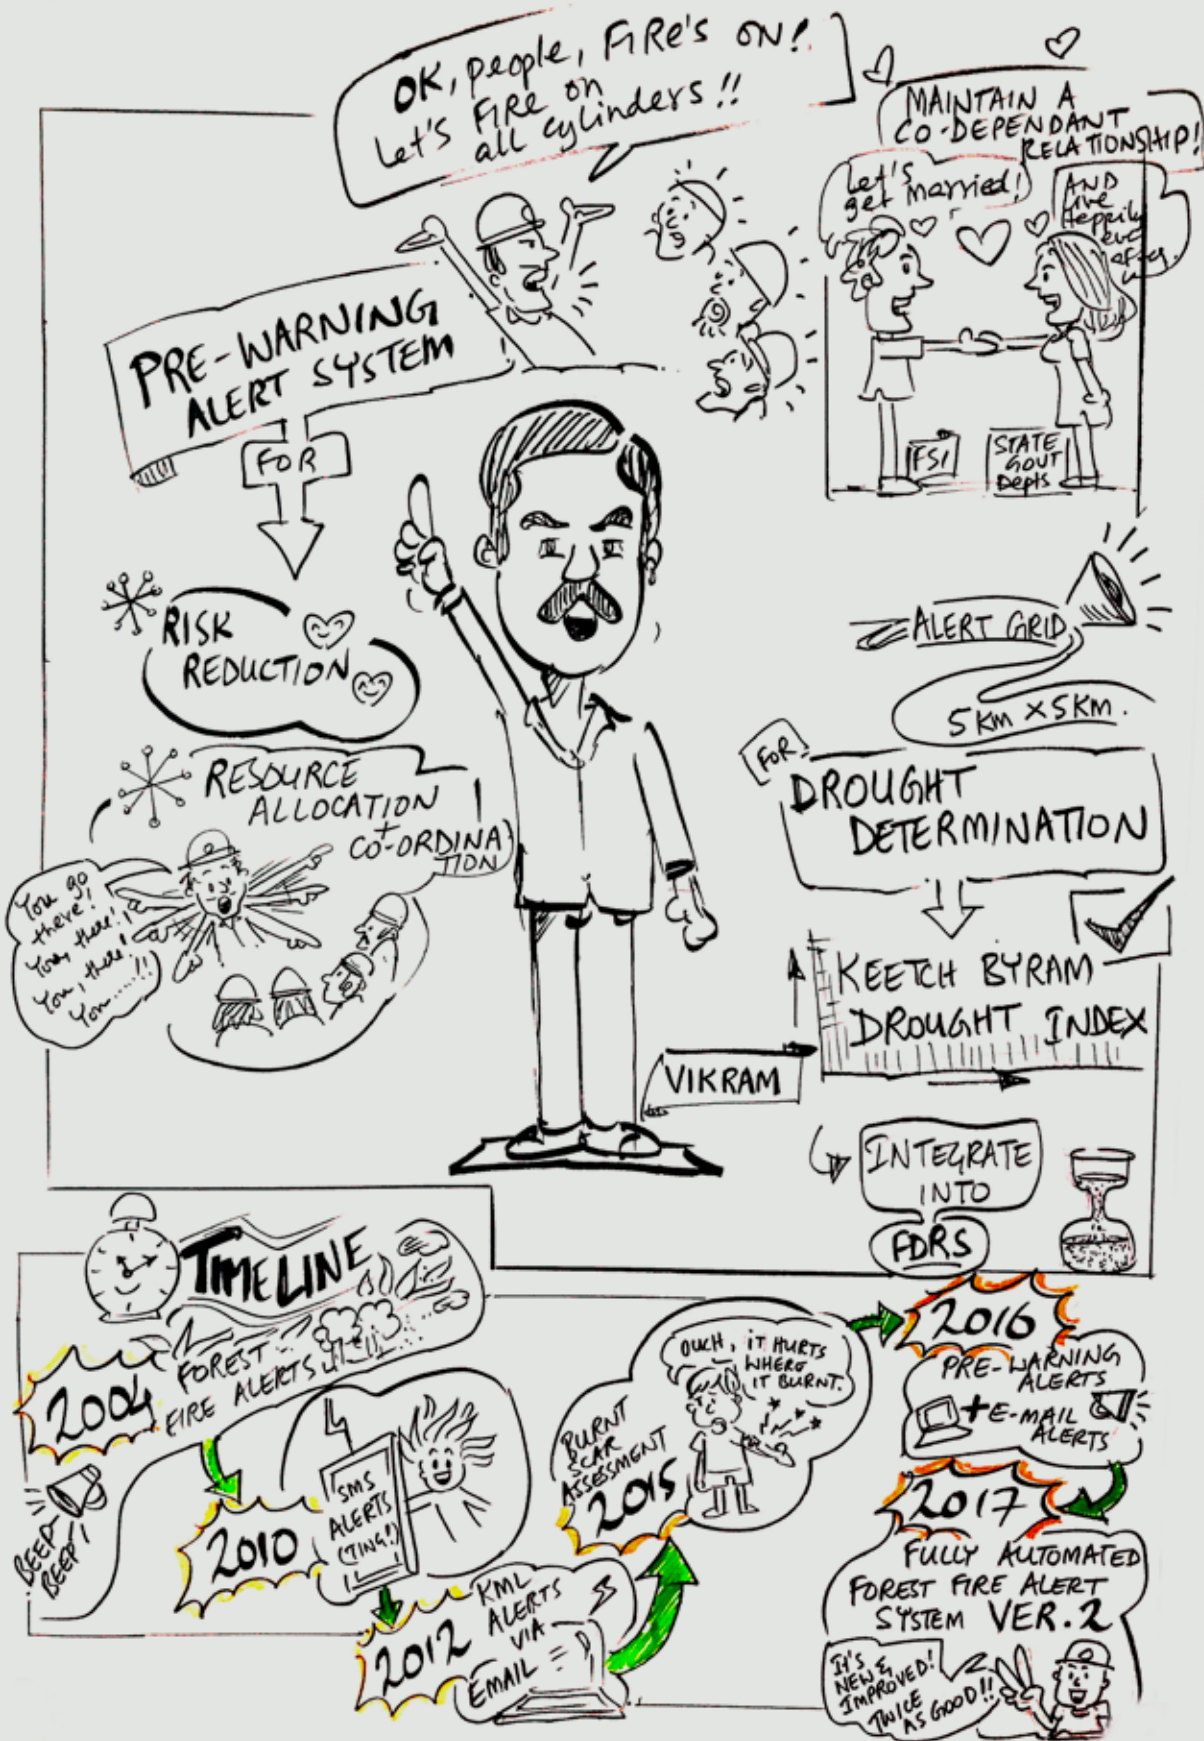 OK, people, FIRe's ON!
Let's FIRE on
all cylinders!!
MAINTAIN A
CO-DEPENDANT
RELATIONSHIP!
Let's
get married!
AND
live
Happily
ever
after
FSI
STATE
GOVT
Depts
PRE-WARNING
ALERT SYSTEM
FOR
RISK
REDUCTION
RESOURCE
ALLOCATION
+
CO-ORDINA
TION
You go
there!
You, there!!
You, there!
You.....!!
VIKRAM
ALERT GRID
5 Km X 5 Km.
FOR
DROUGHT
DETERMINATION
KEETCH BYRAM
DROUGHT INDEX
INTEGRATE
INTO
FDRS
TIMELINE
2004
FOREST
FIRE ALERTS
BEEP-
BEEP!
2010
SMS
ALERTS
(TING!)
2012
KML
ALERTS
VIA
EMAIL
BURNT
SCAR
ASSESSMENT
2015
OUCH, IT HURTS
WHERE
IT BURNT.
2016
PRE-WARNING
ALERTS
+ E-MAIL
ALERTS
2017
FULLY AUTOMATED
FOREST FIRE ALERT
SYSTEM VER.2
It's
NEW &
IMPROVED!
TWICE
AS GOOD!!